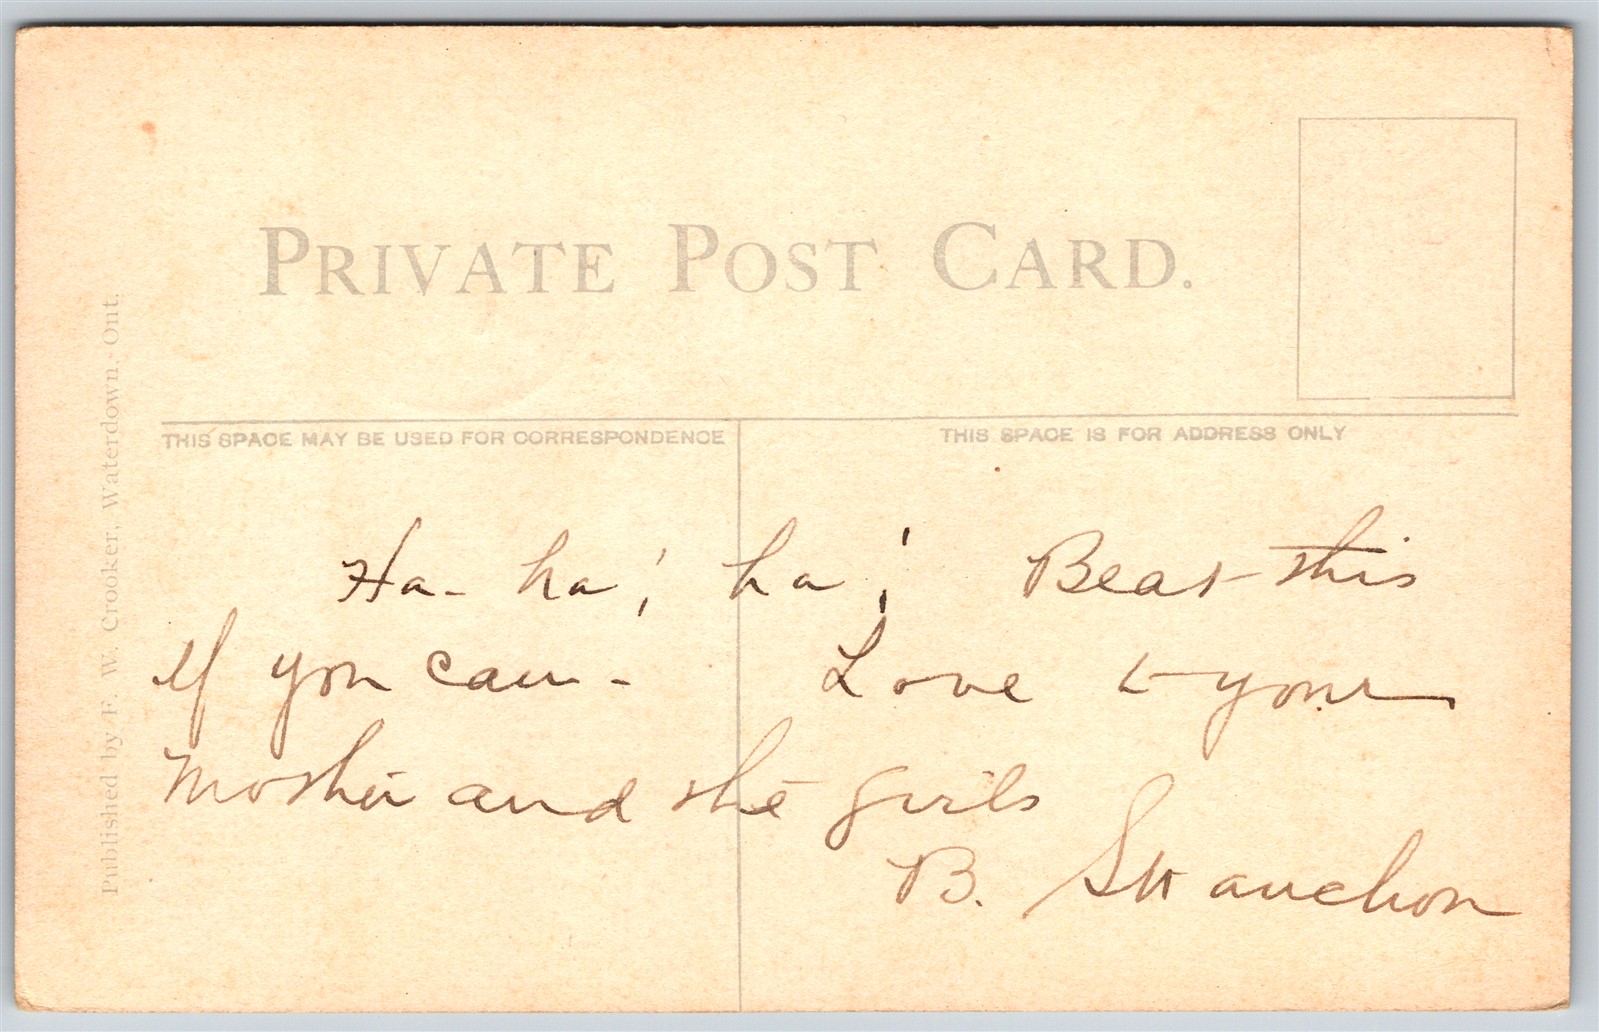 PRIVATE POST CARD.
Published by F. W. Crooker, Waterdown, Ont.
THIS SPACE MAY BE USED FOR CORRESPONDENCE
THIS SPACE IS FOR ADDRESS ONLY
Ha- ha! ha! Beat this
if you can - Love to your
Mother and the girls
B.